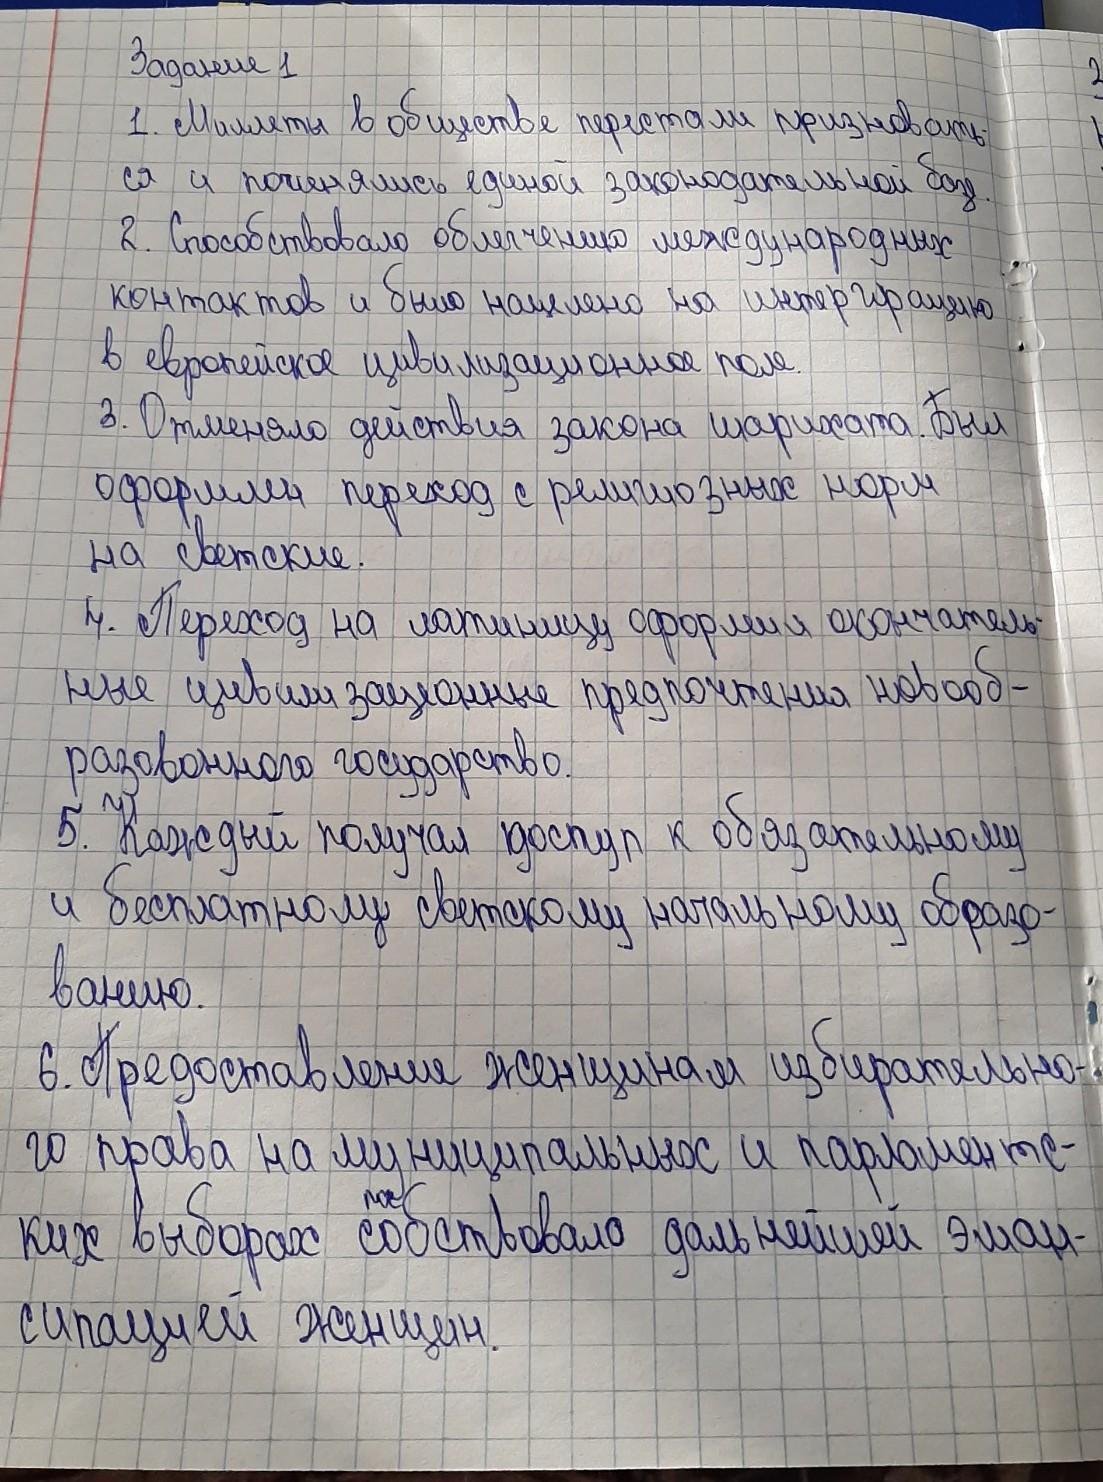 Задание 1
1. Миллеты в обществе перестали признавать-
ся и починялись единой законодательной базе.
2. Способствовало облегчению международных
контактов и было нацелено на интергирацию
в европейское цивилизационное поле.
3. Отменяло действия закона шариата. Был
оформлен переход с религиозных норм
на светские.
4. Переход на латиницу оформил окончатель-
ные цивилизационные предпочтения новооб-
разованного государство.
5. Каждый получал доступ к обязательному
и бесплатному светскому начальному образо-
ванию.
6. Предоставление женщинам избирательно-
го права на муниципальных и парламентс-
ких выборах способствовало дальнейшей эман-
сипацией женщин.